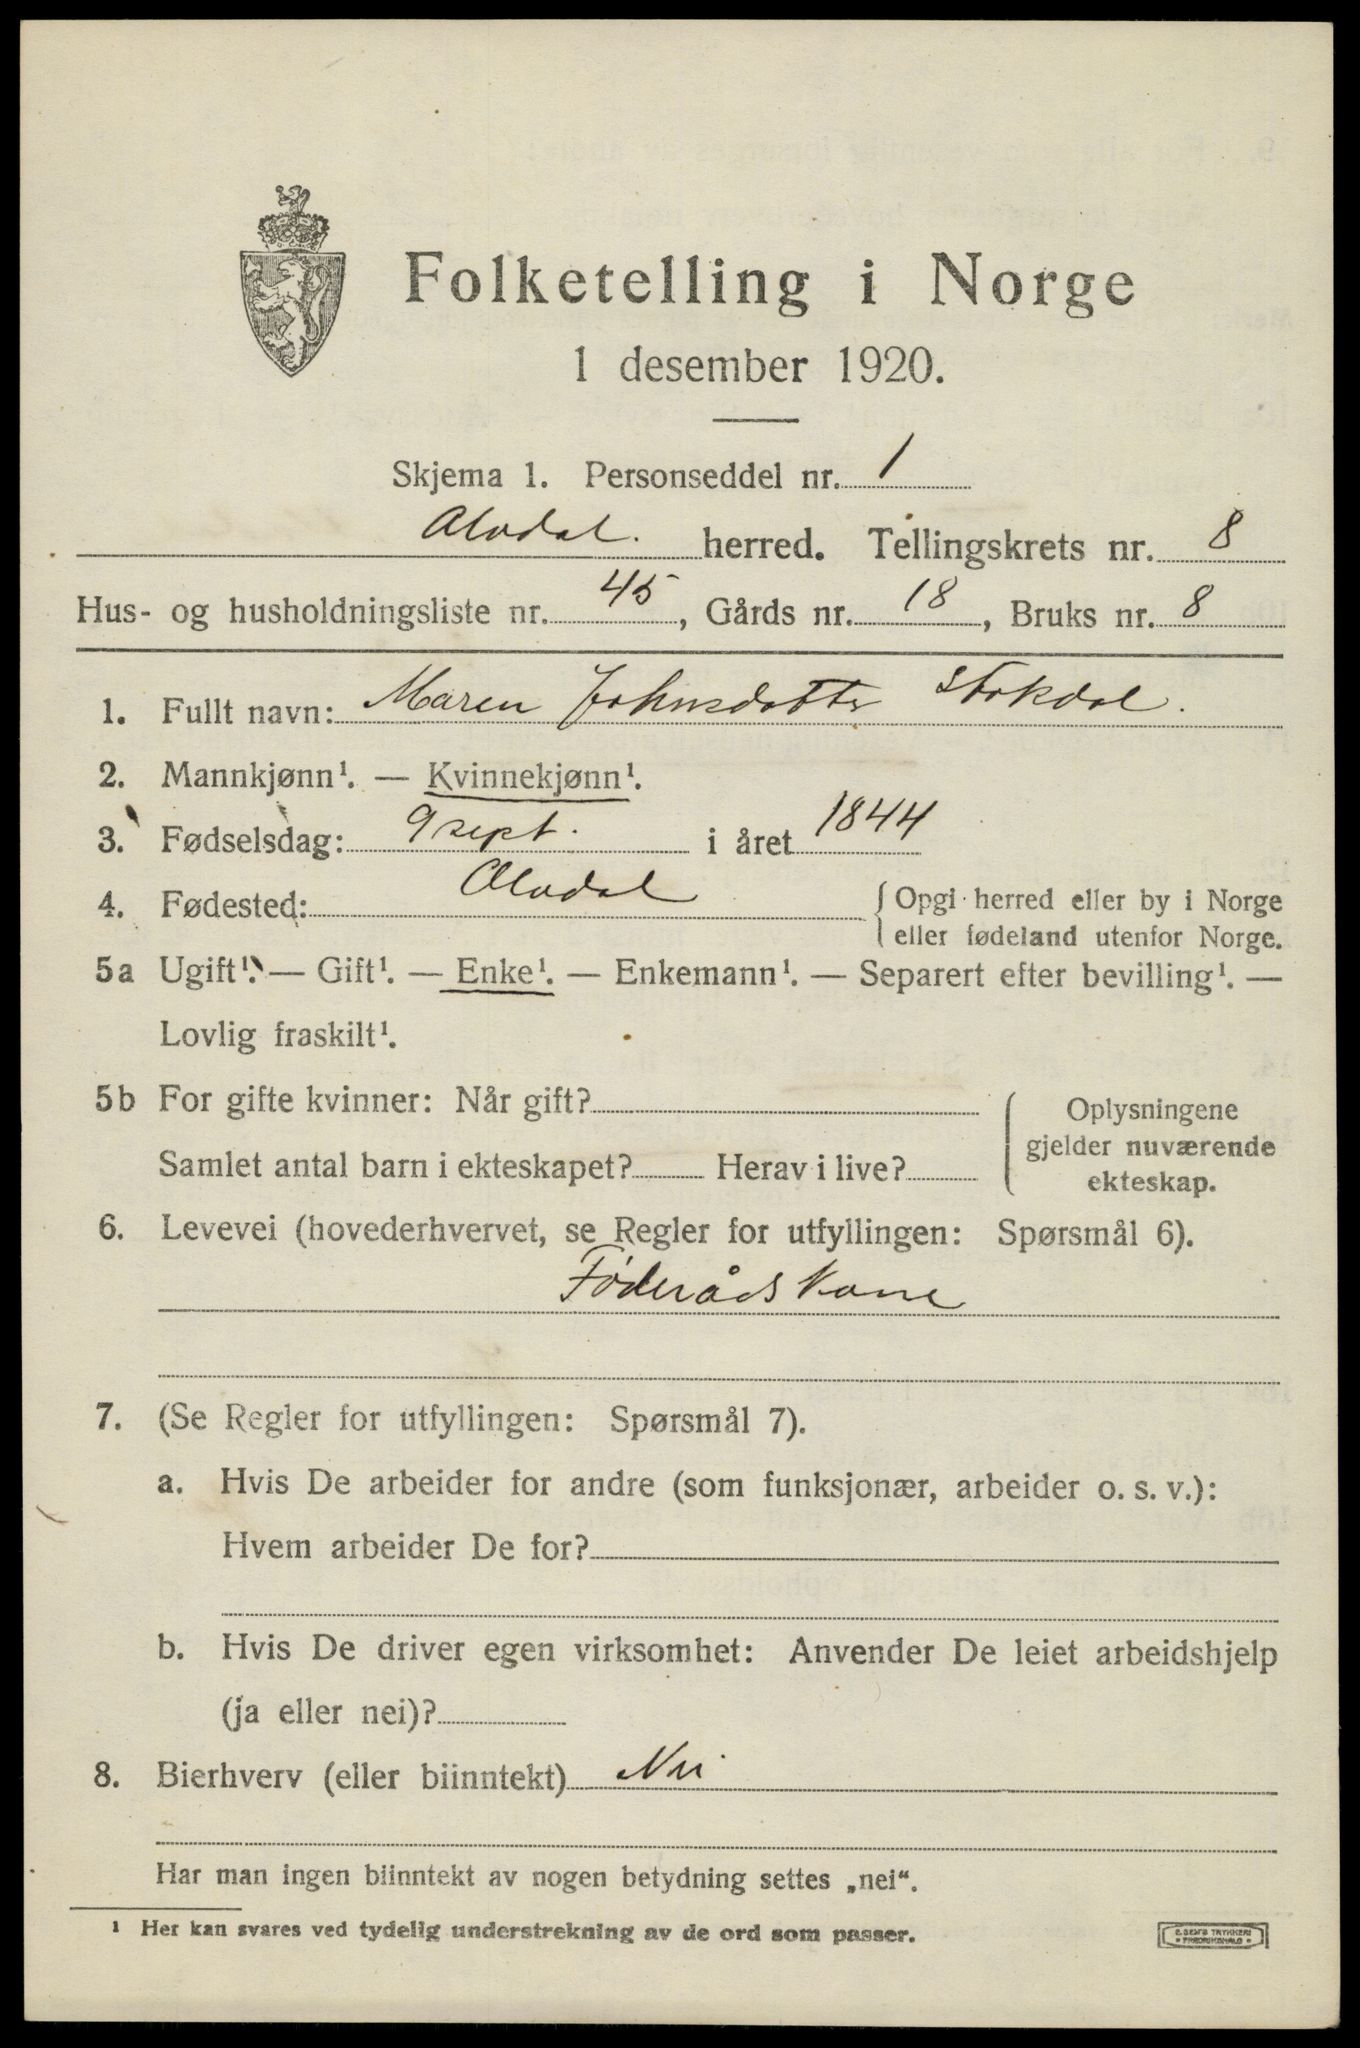 Folketelling i Norge
1 desember 1920.
Skjema 1. Personseddel nr. 1
Alvdal. herred. Tellingskrets nr. 8
Hus- og husholdningsliste nr. 45, Gårds nr. 18, Bruks nr. 8
1. Fullt navn: Maren Johnsdatter Stokdal.
2. Mannkjønn¹. — Kvinnekjønn¹.
3. Fødselsdag: 9 sept. i året 1844
4. Fødested: Alvdal { Opgi herred eller by i Norge
eller fødeland utenfor Norge.
5a Ugift¹. — Gift¹. — Enke¹. — Enkemann¹. — Separert efter bevilling¹. —
Lovlig fraskilt¹.
5b For gifte kvinner: Når gift?
Samlet antal barn i ekteskapet? Herav i live?
Oplysningene
gjelder nuværende
ekteskap.
6. Levevei (hovederhvervet, se Regler for utfyllingen: Spørsmål 6).
Føderåds Kone
7. (Se Regler for utfyllingen: Spørsmål 7).
a. Hvis De arbeider for andre (som funksjonær, arbeider o. s. v.):
Hvem arbeider De for?
b. Hvis De driver egen virksomhet: Anvender De leiet arbeidshjelp
(ja eller nei)?
8. Bierhverv (eller biinntekt) Nei
Har man ingen biinntekt av nogen betydning settes „nei“.
¹ Her kan svares ved tydelig understrekning av de ord som passer.